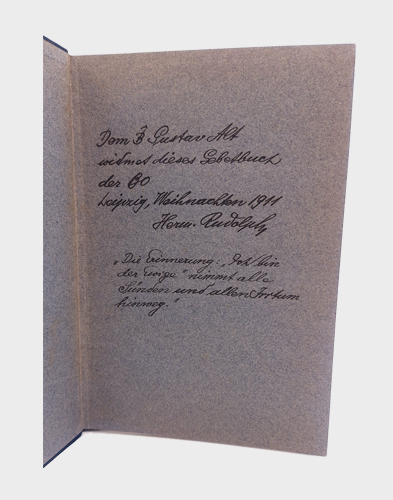 Dem B̂ Gustav Alt
widmet dieses Gebetbuch
der GO
Leipzig, Weihnachten 1911
Herm. Rudolph
„Die Erinnerung: „Ich bin
der Ewige“ nimmt alle
Sünden und allen Irrtum
hinweg.“